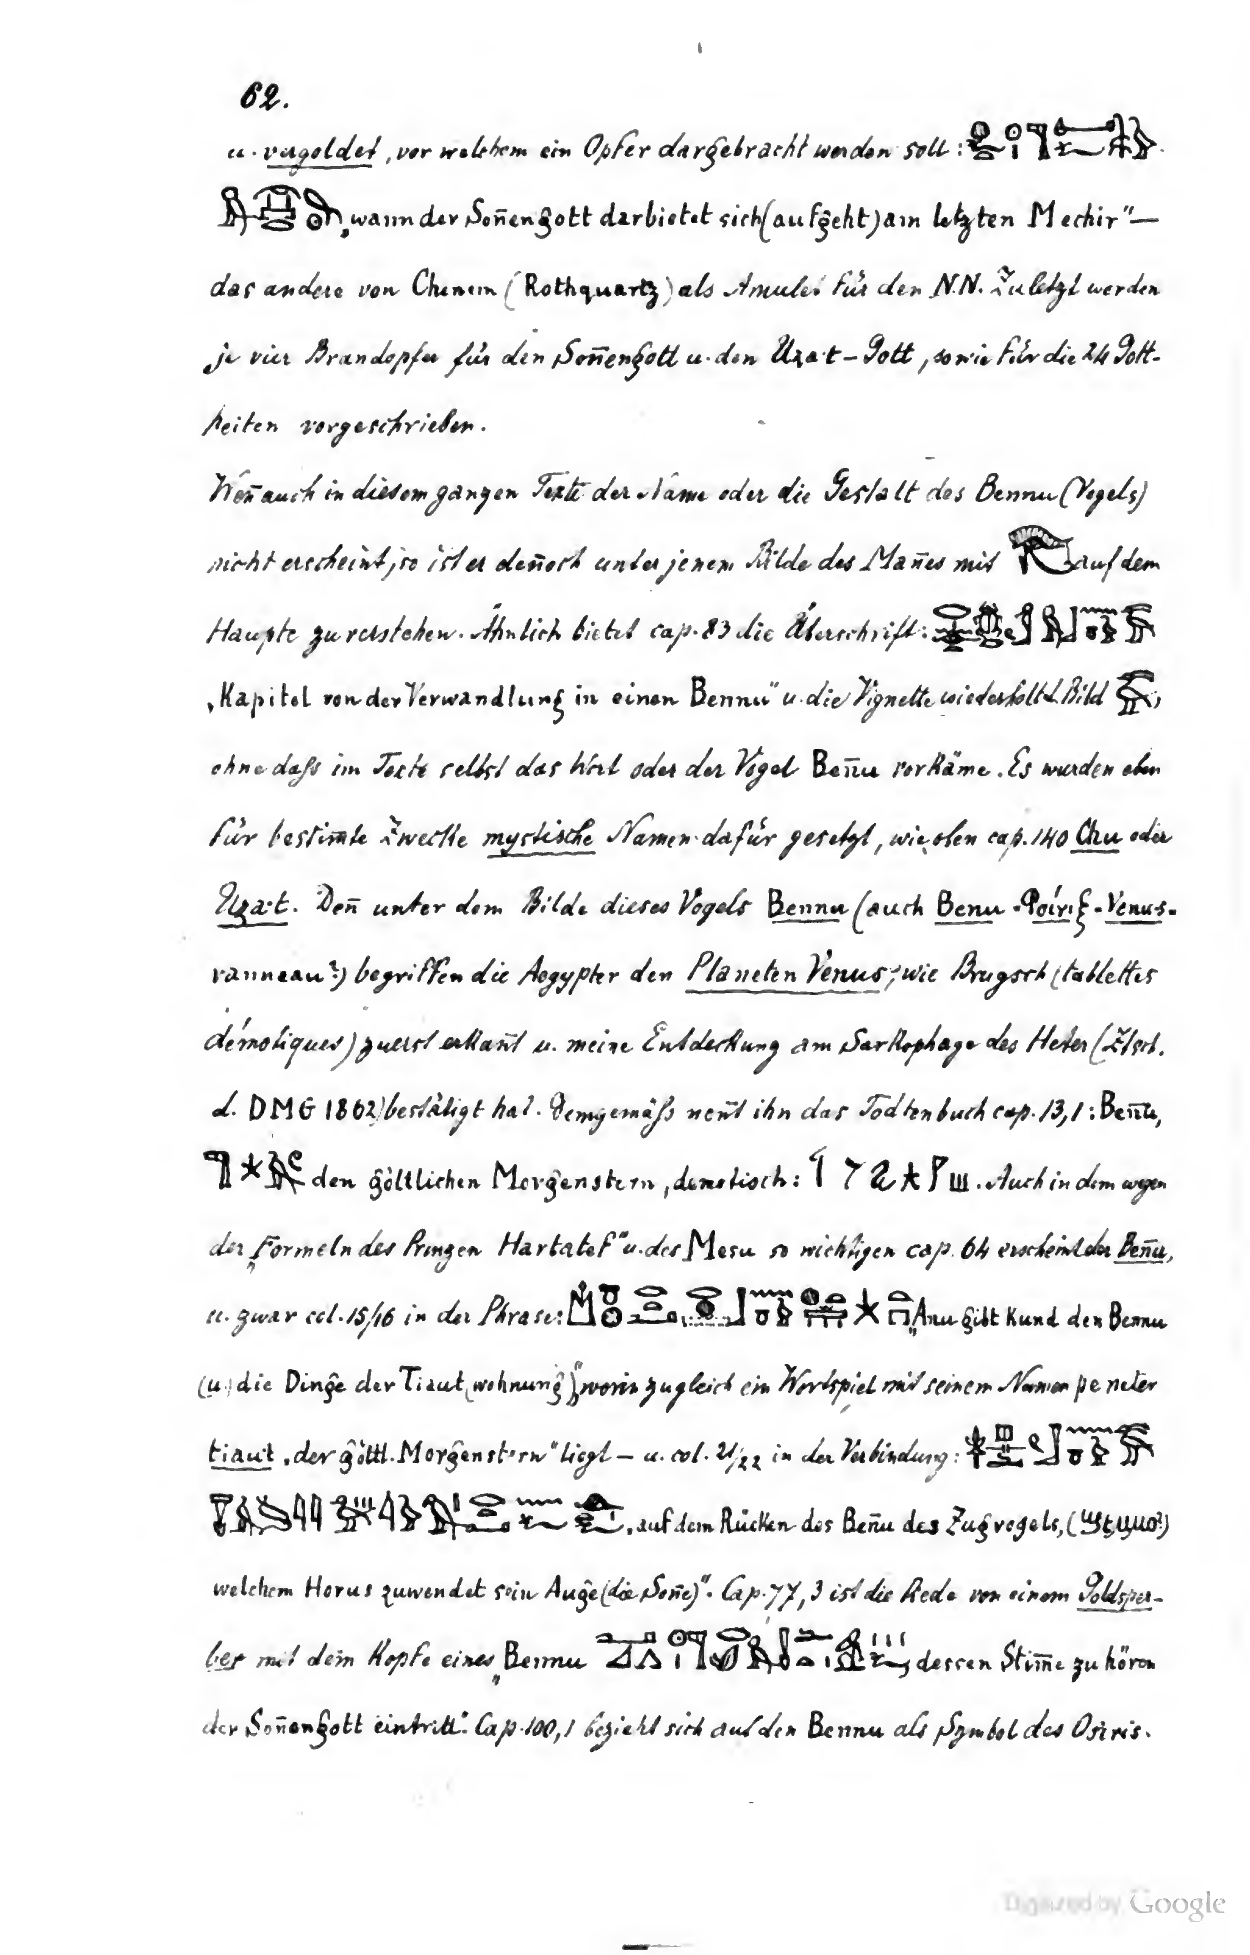 62.
u. vergoldet, vor welchem ein Opfer dargebracht werden soll:
„wann der Son̄engott darbietet sich (aufgeht) am letzten Mechir“ —
das andere von Chenem (Rothquartz) als Amulet für den N.N. Zuletzt werden
je vier Brandopfer für den Son̄engott u. den Uza-t-Gott, sowie für die 24 Gott-
heiten vorgeschrieben.
Wen̄ auch in diesem ganzen Texte der Name oder die Gestalt des Bennu (Vogels)
nicht erscheint, so ist er den̄och unter jenem Bilde des Man̄es mit auf dem
Haupte zu verstehen. Ähnlich bietet cap. 83 die Überschrift:
„Kapitel von der Verwandlung in einen Bennu“ u. die Vignette wiederholt d. Bild ,
ohne daſs im Texte selbst das Wort oder der Vogel Ben̄u vorkäme. Es wurden eben
für bestim̄te Zwecke mystische Namen dafür gesetzt, wie oben cap. 140 Chu oder
Uza-t. Den̄ unter dem Bilde dieses Vogels Bennu (auch Benu-Venus-
vanneau?) begriffen die Aegypter den Planeten Venus, wie Brugsch (tablettes
démotiques) zuerst erkan̄t u. meine Entdeckung am Sarkophage des Heter (Ztsch.
d. DMG 1862) bestätigt hat. Demgemäſs nen̄t ihn das Todtenbuch cap. 13,1: Ben̄u,
den göttlichen Morgenstern, demotisch: . Auch in dem wegen
der „Formeln des Prinzen Hartatef“ u. des Mesu so wichtigen cap. 64 erscheint der Ben̄u,
u. zwar col. 15/16 in der Phrase: „Anu gibt kund den Bennu
(u.) die Dinge der Tiaut (wohnung)“, worin zugleich ein Wortspiel mit seinem Namen pe neter
tiaut „der göttl. Morgenstern“ liegt — u. col. 21/22 in der Verbindung:
„auf dem Rücken des Ben̄u des Zugvogels,
welchem Horus zuwendet sein Auge (die Son̄e)“. Cap. 77,3 ist die Rede von einem Goldsper-
ber mit dem Kopfe eines „Bennu , dessen Stim̄e zu hören
der Son̄engott eintritt“. Cap. 100,1 bezieht sich auf den Bennu als Symbol des Osiris.
Digitized by Google